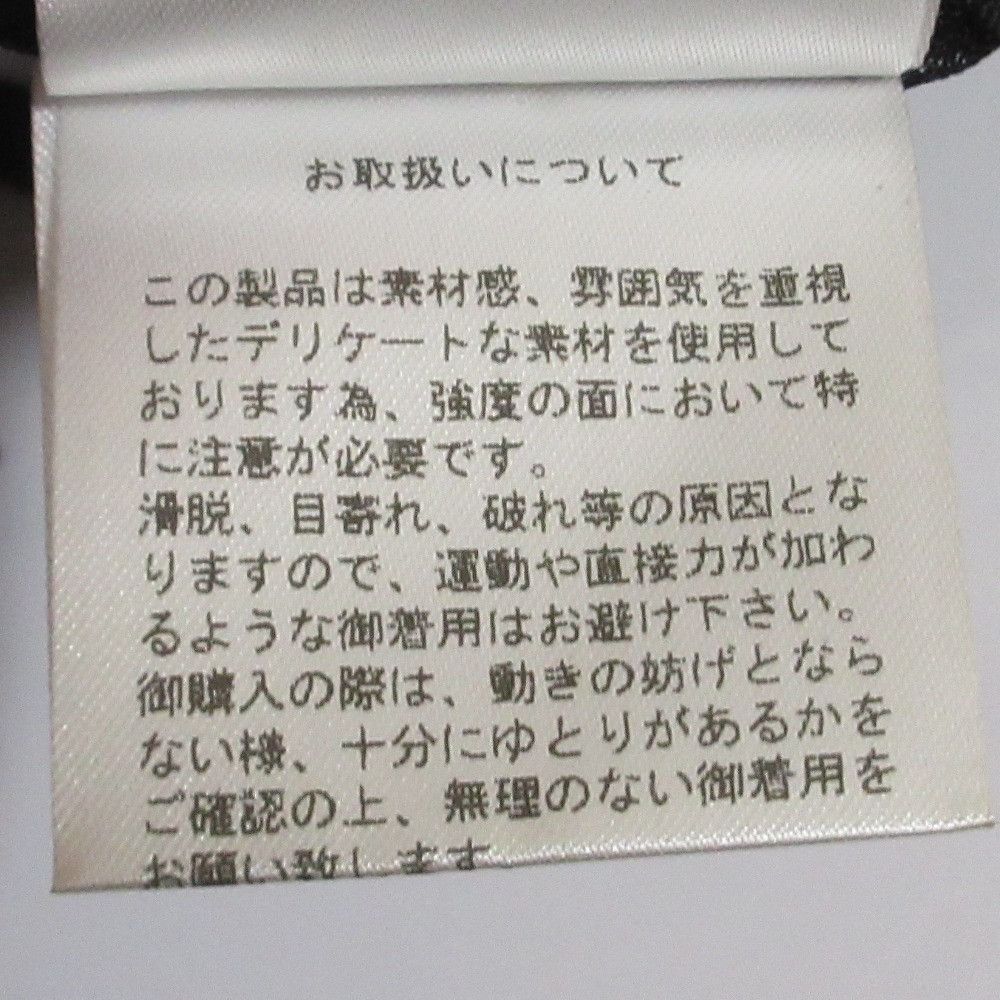 お取扱いについて
この製品は素材感、雰囲気を重視
したデリケートな素材を使用して
おります為、強度の面において特
に注意が必要です。
滑脱、目寄れ、破れ等の原因とな
りますので、運動や直接力が加わ
るような御着用はお避け下さい。
御購入の際は、動きの妨げとなら
ない様、十分にゆとりがあるかを
ご確認の上、無理のない御着用を
お願い致します